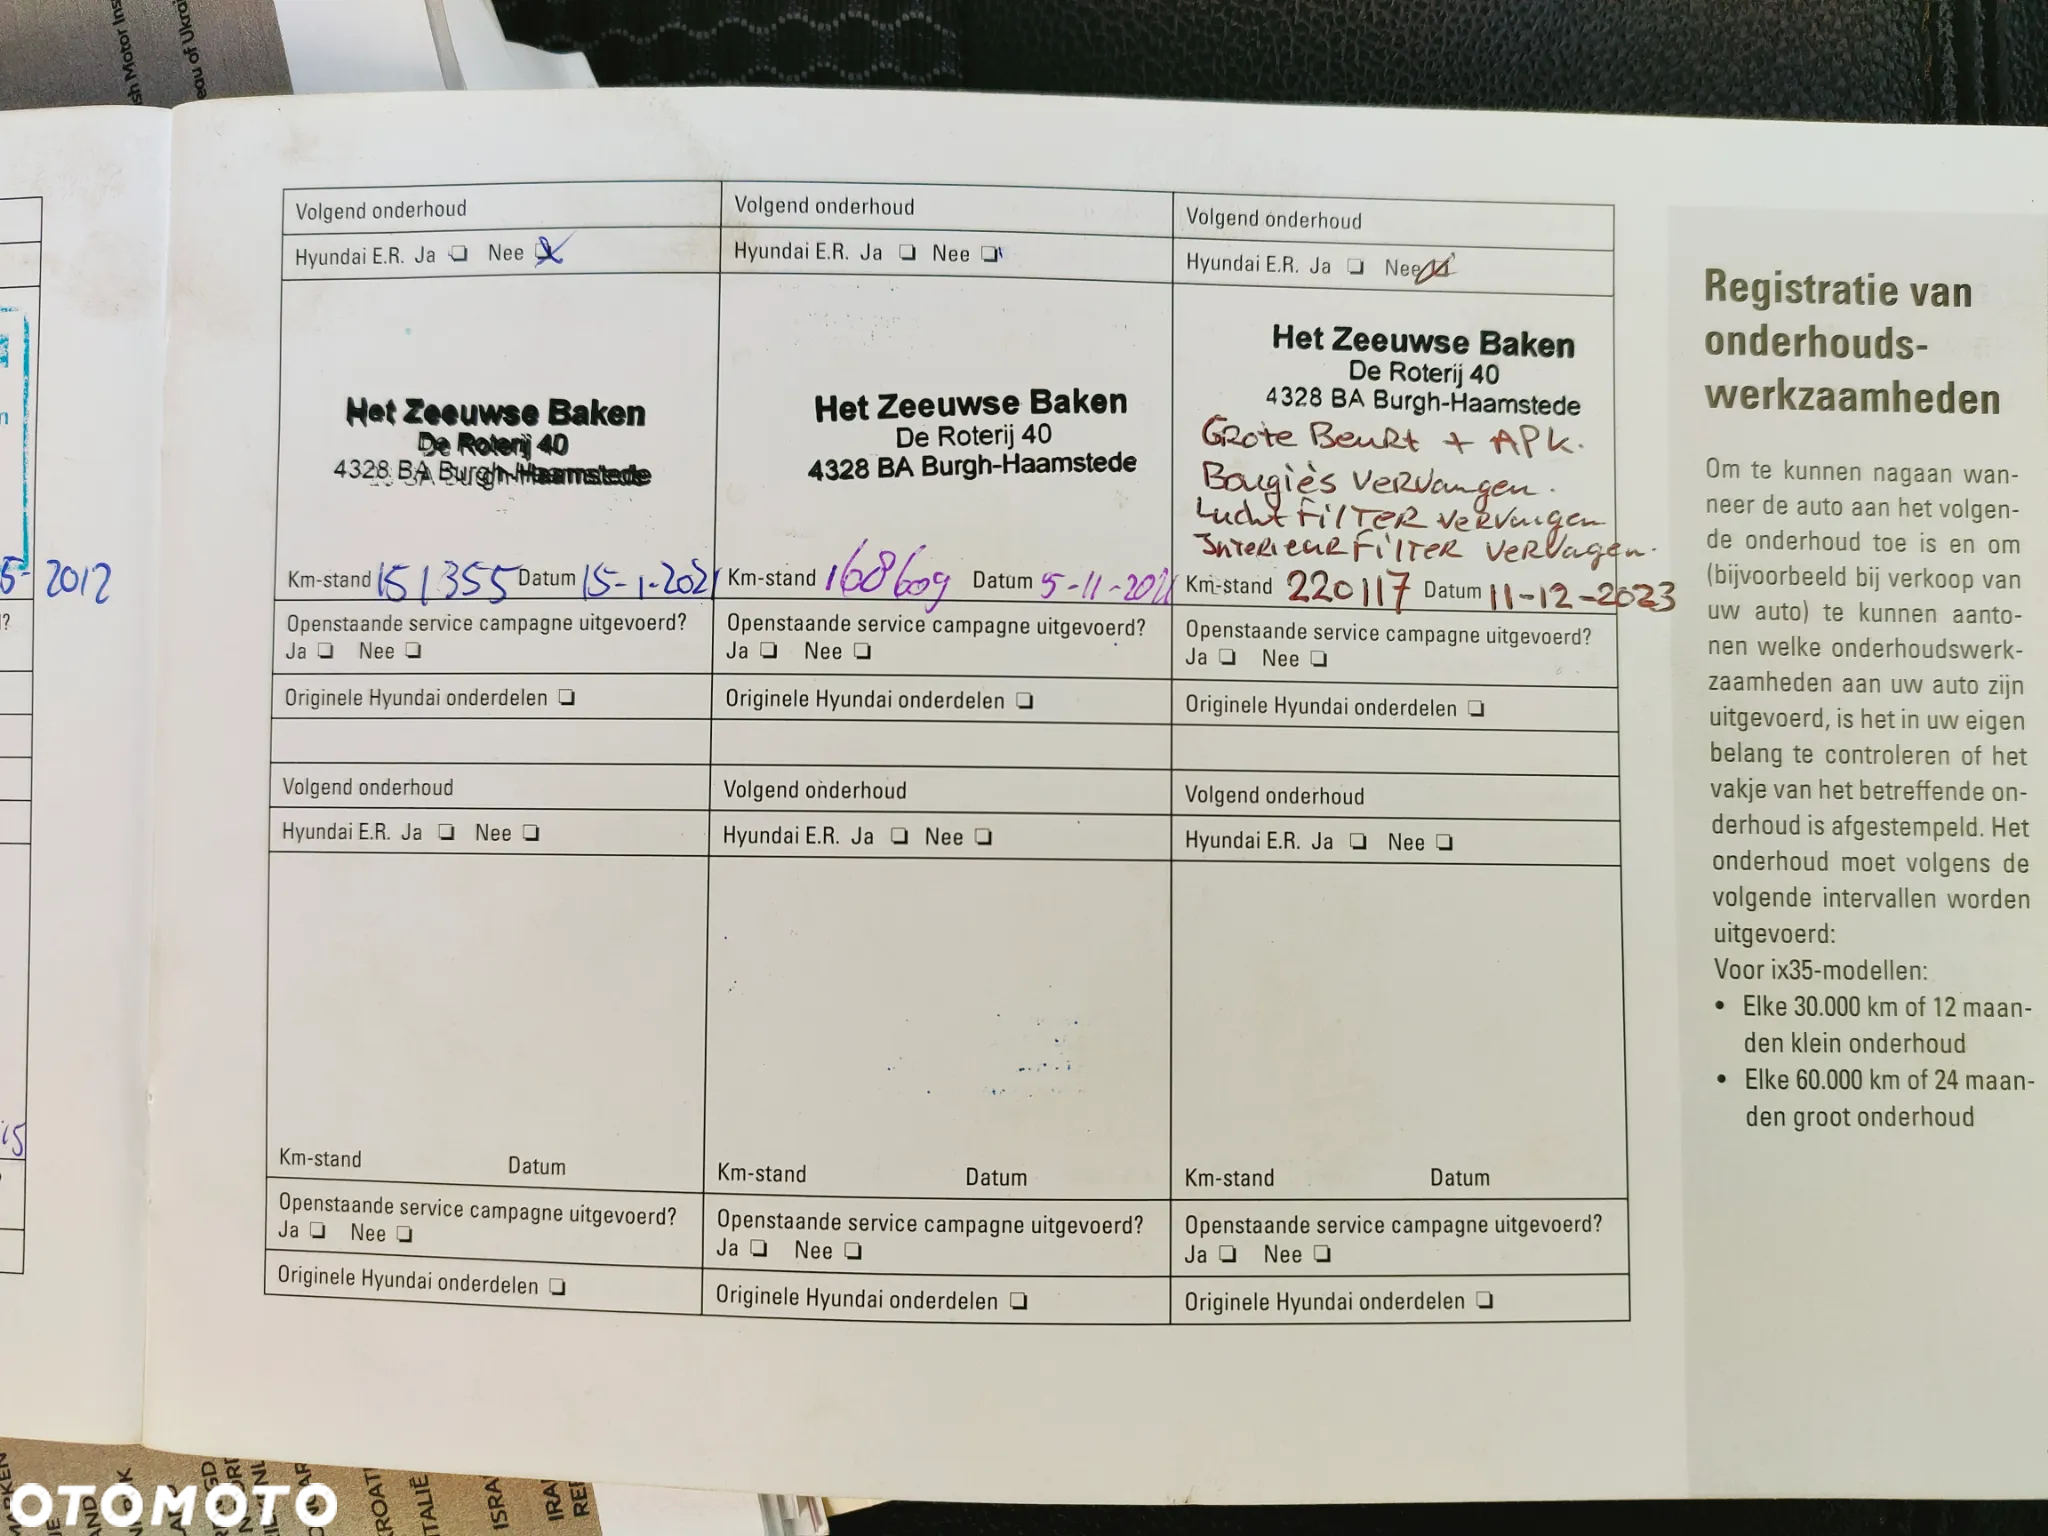 sh Motor Ins
eau of Ukrai
5- 2012
?
Volgend onderhoud
Hyundai E.R. Ja ❏ Nee ❏
Het Zeeuwse Baken
De Roterij 40
4328 BA Burgh-Haamstede
Km-stand 151355 Datum 15-1-2021
Openstaande service campagne uitgevoerd?
Ja ❏ Nee ❏
Originele Hyundai onderdelen ❏
Volgend onderhoud
Hyundai E.R. Ja ❏ Nee ❏
Het Zeeuwse Baken
De Roterij 40
4328 BA Burgh-Haamstede
Km-stand 168609 Datum 5-11-202
Openstaande service campagne uitgevoerd?
Ja ❏ Nee ❏
Originele Hyundai onderdelen ❏
Volgend onderhoud
Hyundai E.R. Ja ❏ Nee
Het Zeeuwse Baken
De Roterij 40
4328 BA Burgh-Haamstede
Grote Beurt + APK.
Bougiès vervangen.
Lucht Filter vervangen
Interieur Filter vervagen.
Km-stand 220117 Datum 11-12-2023
Openstaande service campagne uitgevoerd?
Ja ❏ Nee ❏
Originele Hyundai onderdelen ❏
Volgend onderhoud
Hyundai E.R. Ja ❏ Nee ❏
Km-stand Datum
Openstaande service campagne uitgevoerd?
Ja ❏ Nee ❏
Originele Hyundai onderdelen ❏
Volgend onderhoud
Hyundai E.R. Ja ❏ Nee ❏
Km-stand Datum
Openstaande service campagne uitgevoerd?
Ja ❏ Nee ❏
Originele Hyundai onderdelen ❏
Volgend onderhoud
Hyundai E.R. Ja ❏ Nee ❏
Km-stand Datum
Openstaande service campagne uitgevoerd?
Ja ❏ Nee ❏
Originele Hyundai onderdelen ❏
Registratie van
onderhouds-
werkzaamheden
Om te kunnen nagaan wan-
neer de auto aan het volgen-
de onderhoud toe is en om
(bijvoorbeeld bij verkoop van
uw auto) te kunnen aanto-
nen welke onderhoudswerk-
zaamheden aan uw auto zijn
uitgevoerd, is het in uw eigen
belang te controleren of het
vakje van het betreffende on-
derhoud is afgestempeld. Het
onderhoud moet volgens de
volgende intervallen worden
uitgevoerd:
Voor ix35-modellen:
• Elke 30.000 km of 12 maan-
den klein onderhoud
• Elke 60.000 km of 24 maan-
den groot onderhoud
KROATI
ITALIË
ISRA
IRA
OTOMOTO